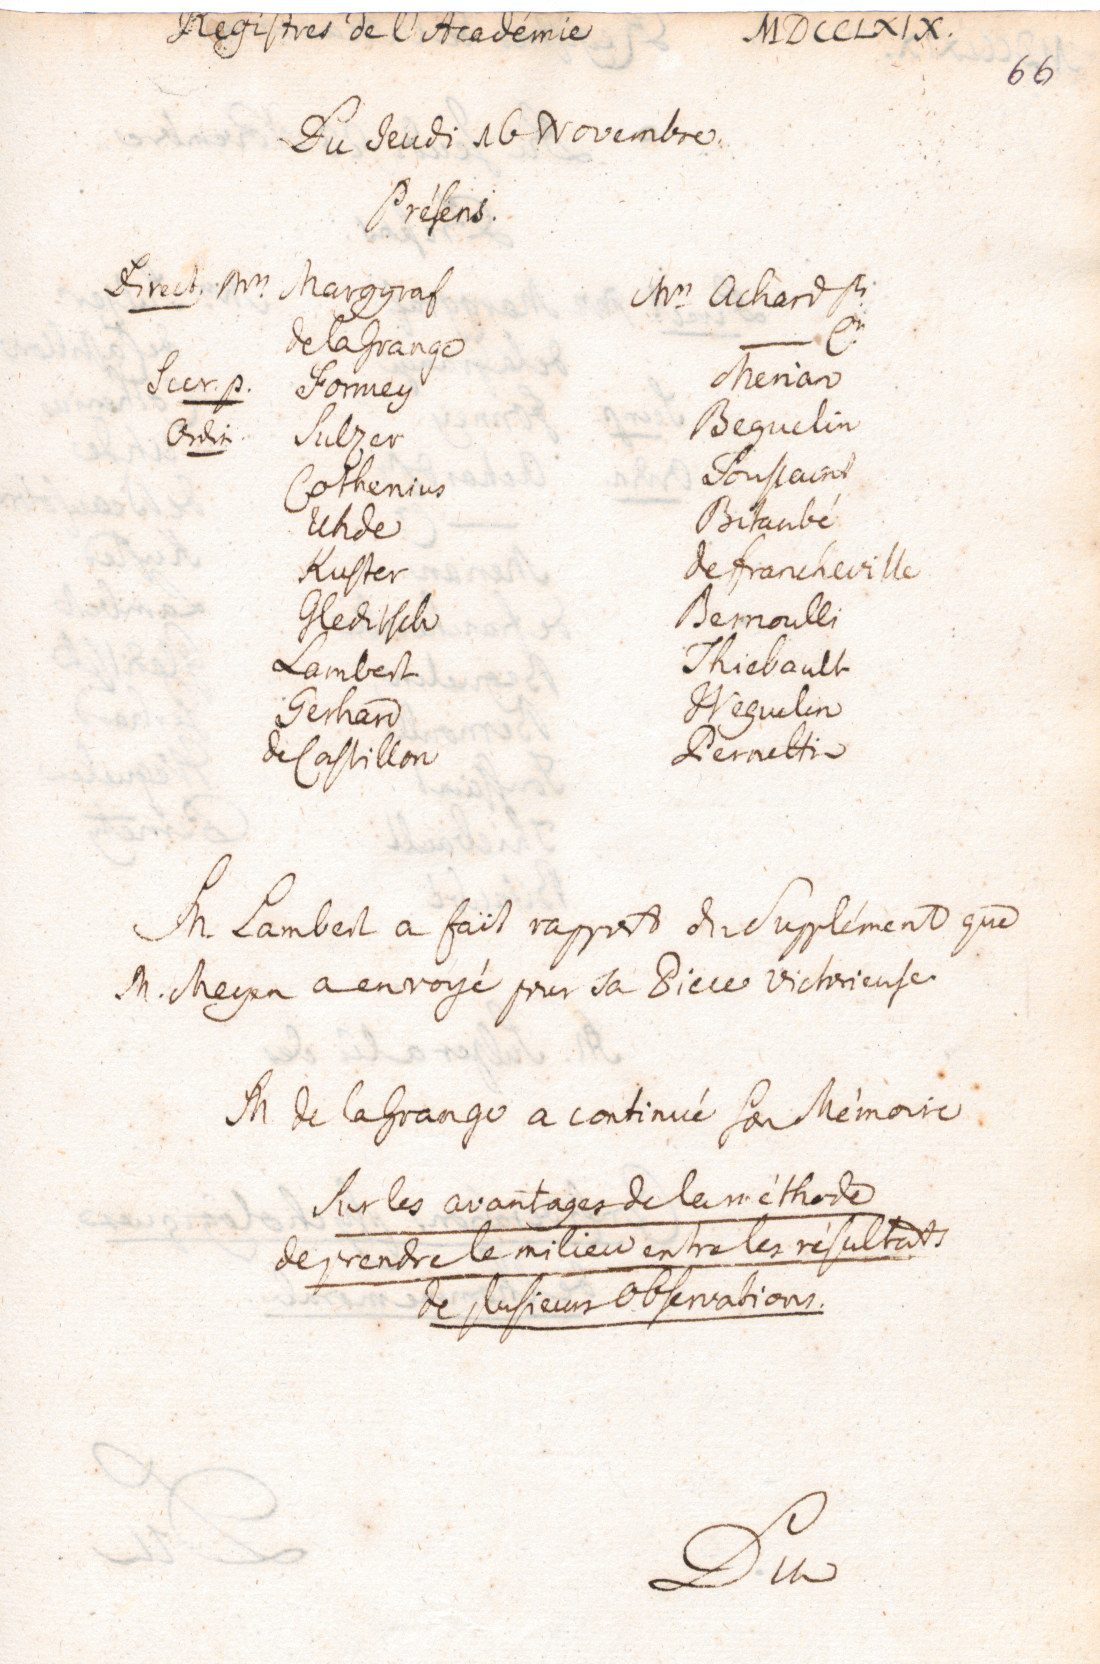 Registres de l'Académie MDCCLXIX.
66
Du Jeudi 16 Novembre.
Présens.
Direct. Mrs. Marggraf
de la Grange
Secr. p. Formey
Ordin. Sulzer
Cothenius
Uhde
Kuster
Gleditsch
Lambert
Gerhard
de Castillon
Mrs. Achard
Merian
Beguelin
Toussaint
Bitaubé
de Francheville
Bernoulli
Thiebault
Weguelin
Pernetti
M. Lambert a fait rapport du Supplément que
M. Meyen a envoyé pour sa Piece victorieuse.
M de la Grange a continué son Mémoire
Sur les avantages de la méthode
de prendre le milieu entre les résultats
de plusieurs Observations.
Du